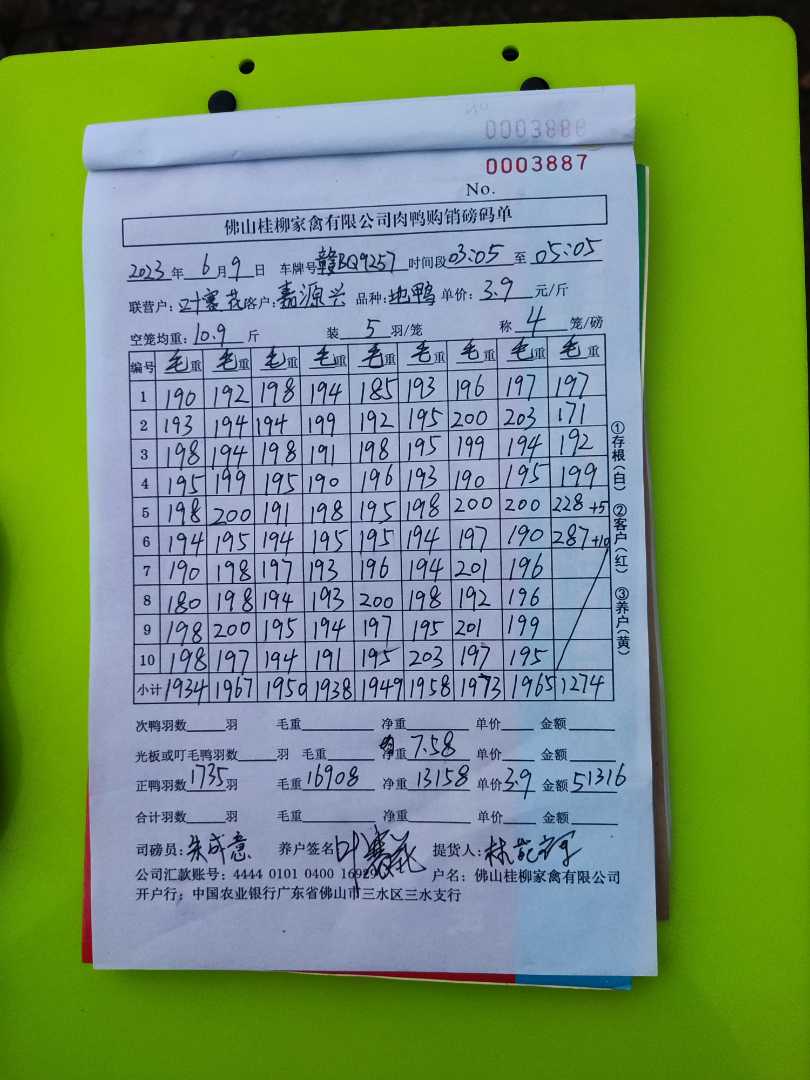 0003888
0003887
No.
佛山桂柳家禽有限公司肉鸭购销磅码单
2023年6月9日 车牌号赣BQ9257时间段03:05至05:05
联营户:叶赛花客户:嘉源兴品种:地鸭单价:3.9元/斤
空笼均重:10.9斤 装5羽/笼 称4笼/磅
编号 毛重 毛重 毛重 毛重 毛重 毛重 毛重 毛重 毛重
1 190 192 198 194 185 193 196 197 197
2 193 194 194 199 192 195 200 203 171
3 198 194 198 191 198 195 199 194 192
4 195 199 195 190 196 193 190 195 199
5 198 200 191 198 195 198 200 200 228+5
6 194 195 194 195 195 194 197 190 287+10
7 190 198 197 193 196 194 201 196
8 180 198 194 193 200 198 192 196
9 198 200 195 194 197 195 201 199
10 198 197 194 191 195 203 197 195
小计 1934 1967 1950 1938 1949 1958 1973 1965 1274
①存根(白) ②客户(红) ③养户(黄)
次鸭羽数 羽 毛重 净重 单价 金额
光板或叮毛鸭羽数 羽 毛重 均净重7.58 单价 金额
正鸭羽数1735羽 毛重16908 净重13158 单价3.9 金额51316
合计羽数 羽 毛重 净重 单价 金额
司磅员:朱成意 养户签名 叶赛花 提货人:林
公司汇款账号:4444 0101 0400 16929 户名:佛山桂柳家禽有限公司
开户行:中国农业银行广东省佛山市三水区三水支行